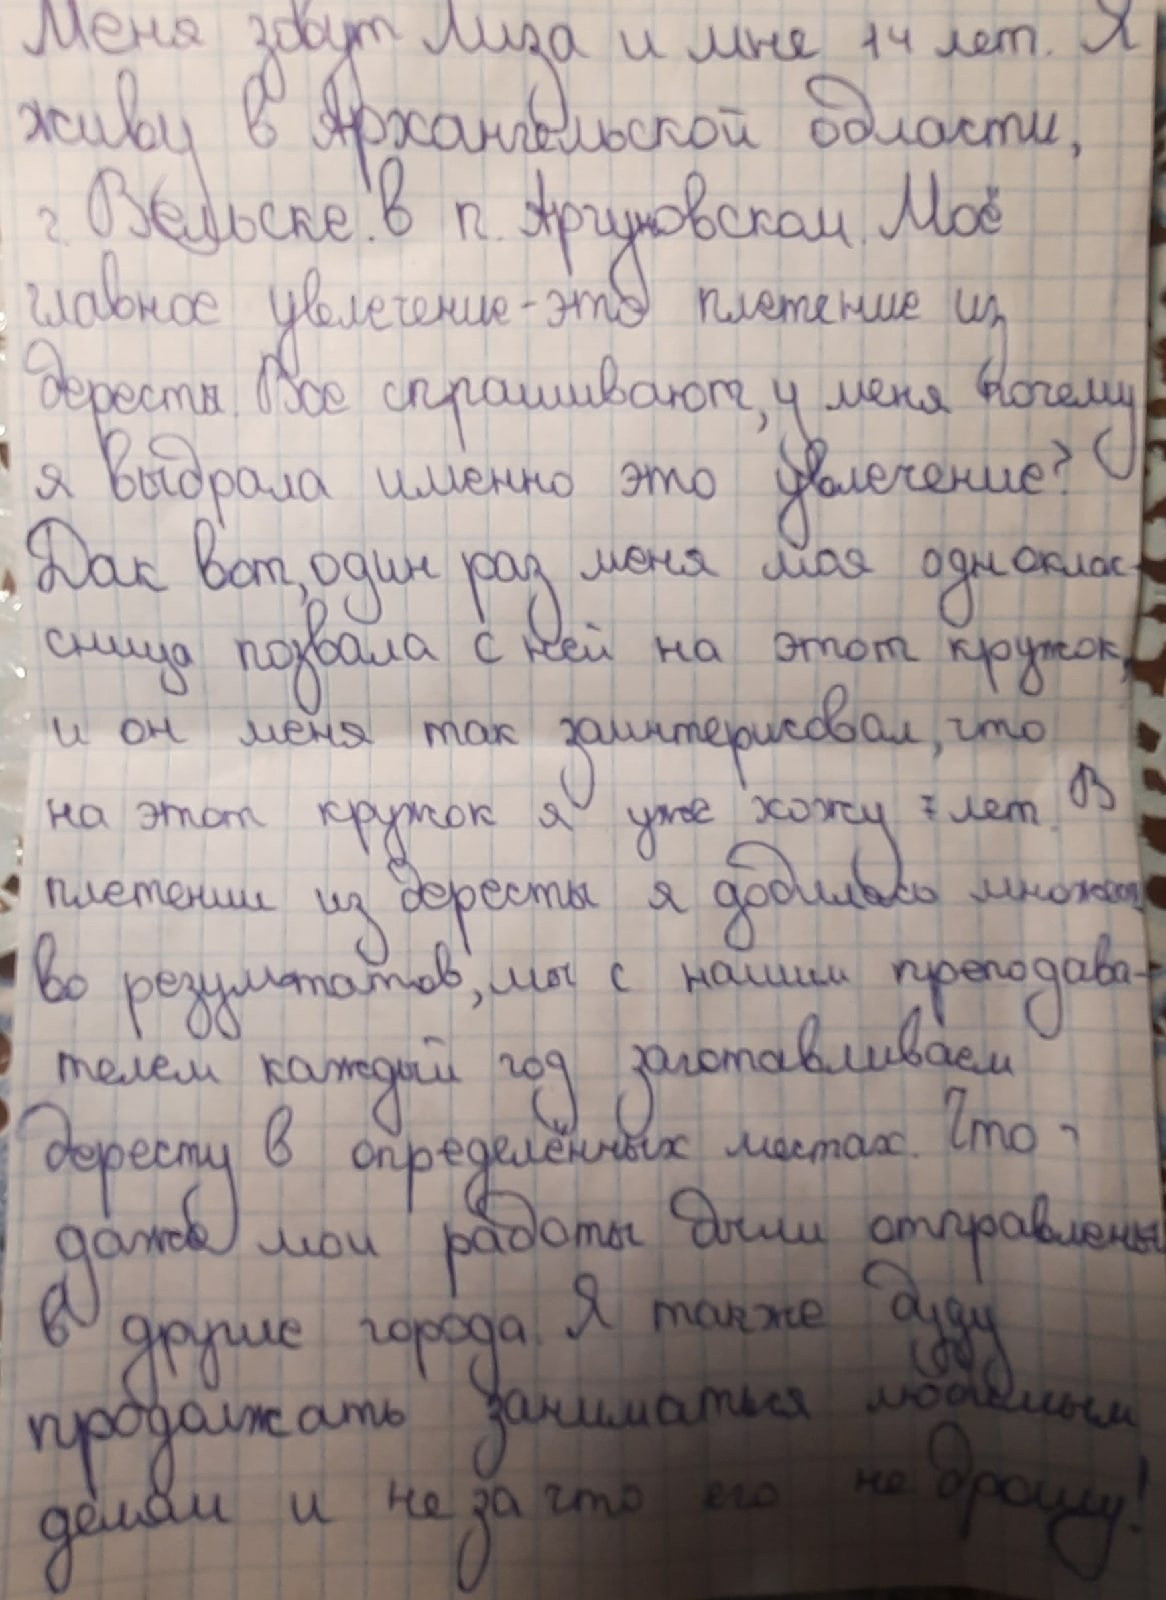 Меня зовут Лиза и мне 14 лет. Я
живу в Архангельской области,
г. Вельске. в п. Аргуновском. Моё
главное увлечение - это плетение из
бересты. Все спрашивают, у меня почему
я выбрала именно это увлечение?
Дак вот, один раз меня моя одноклас-
сница позвала с ней на этот кружок,
и он меня так заинтерисовал, что
на этот кружок я уже хожу 7 лет. В
плетении из бересты я добилась множест
во результатов, мы с нашим преподава-
телем каждый год заготавливаем
бересту в определённых местах. Что-
даже мои работы были отправлены
в другие города. Я также буду
продолжать заниматься любимым
делом и не за что его не брошу!